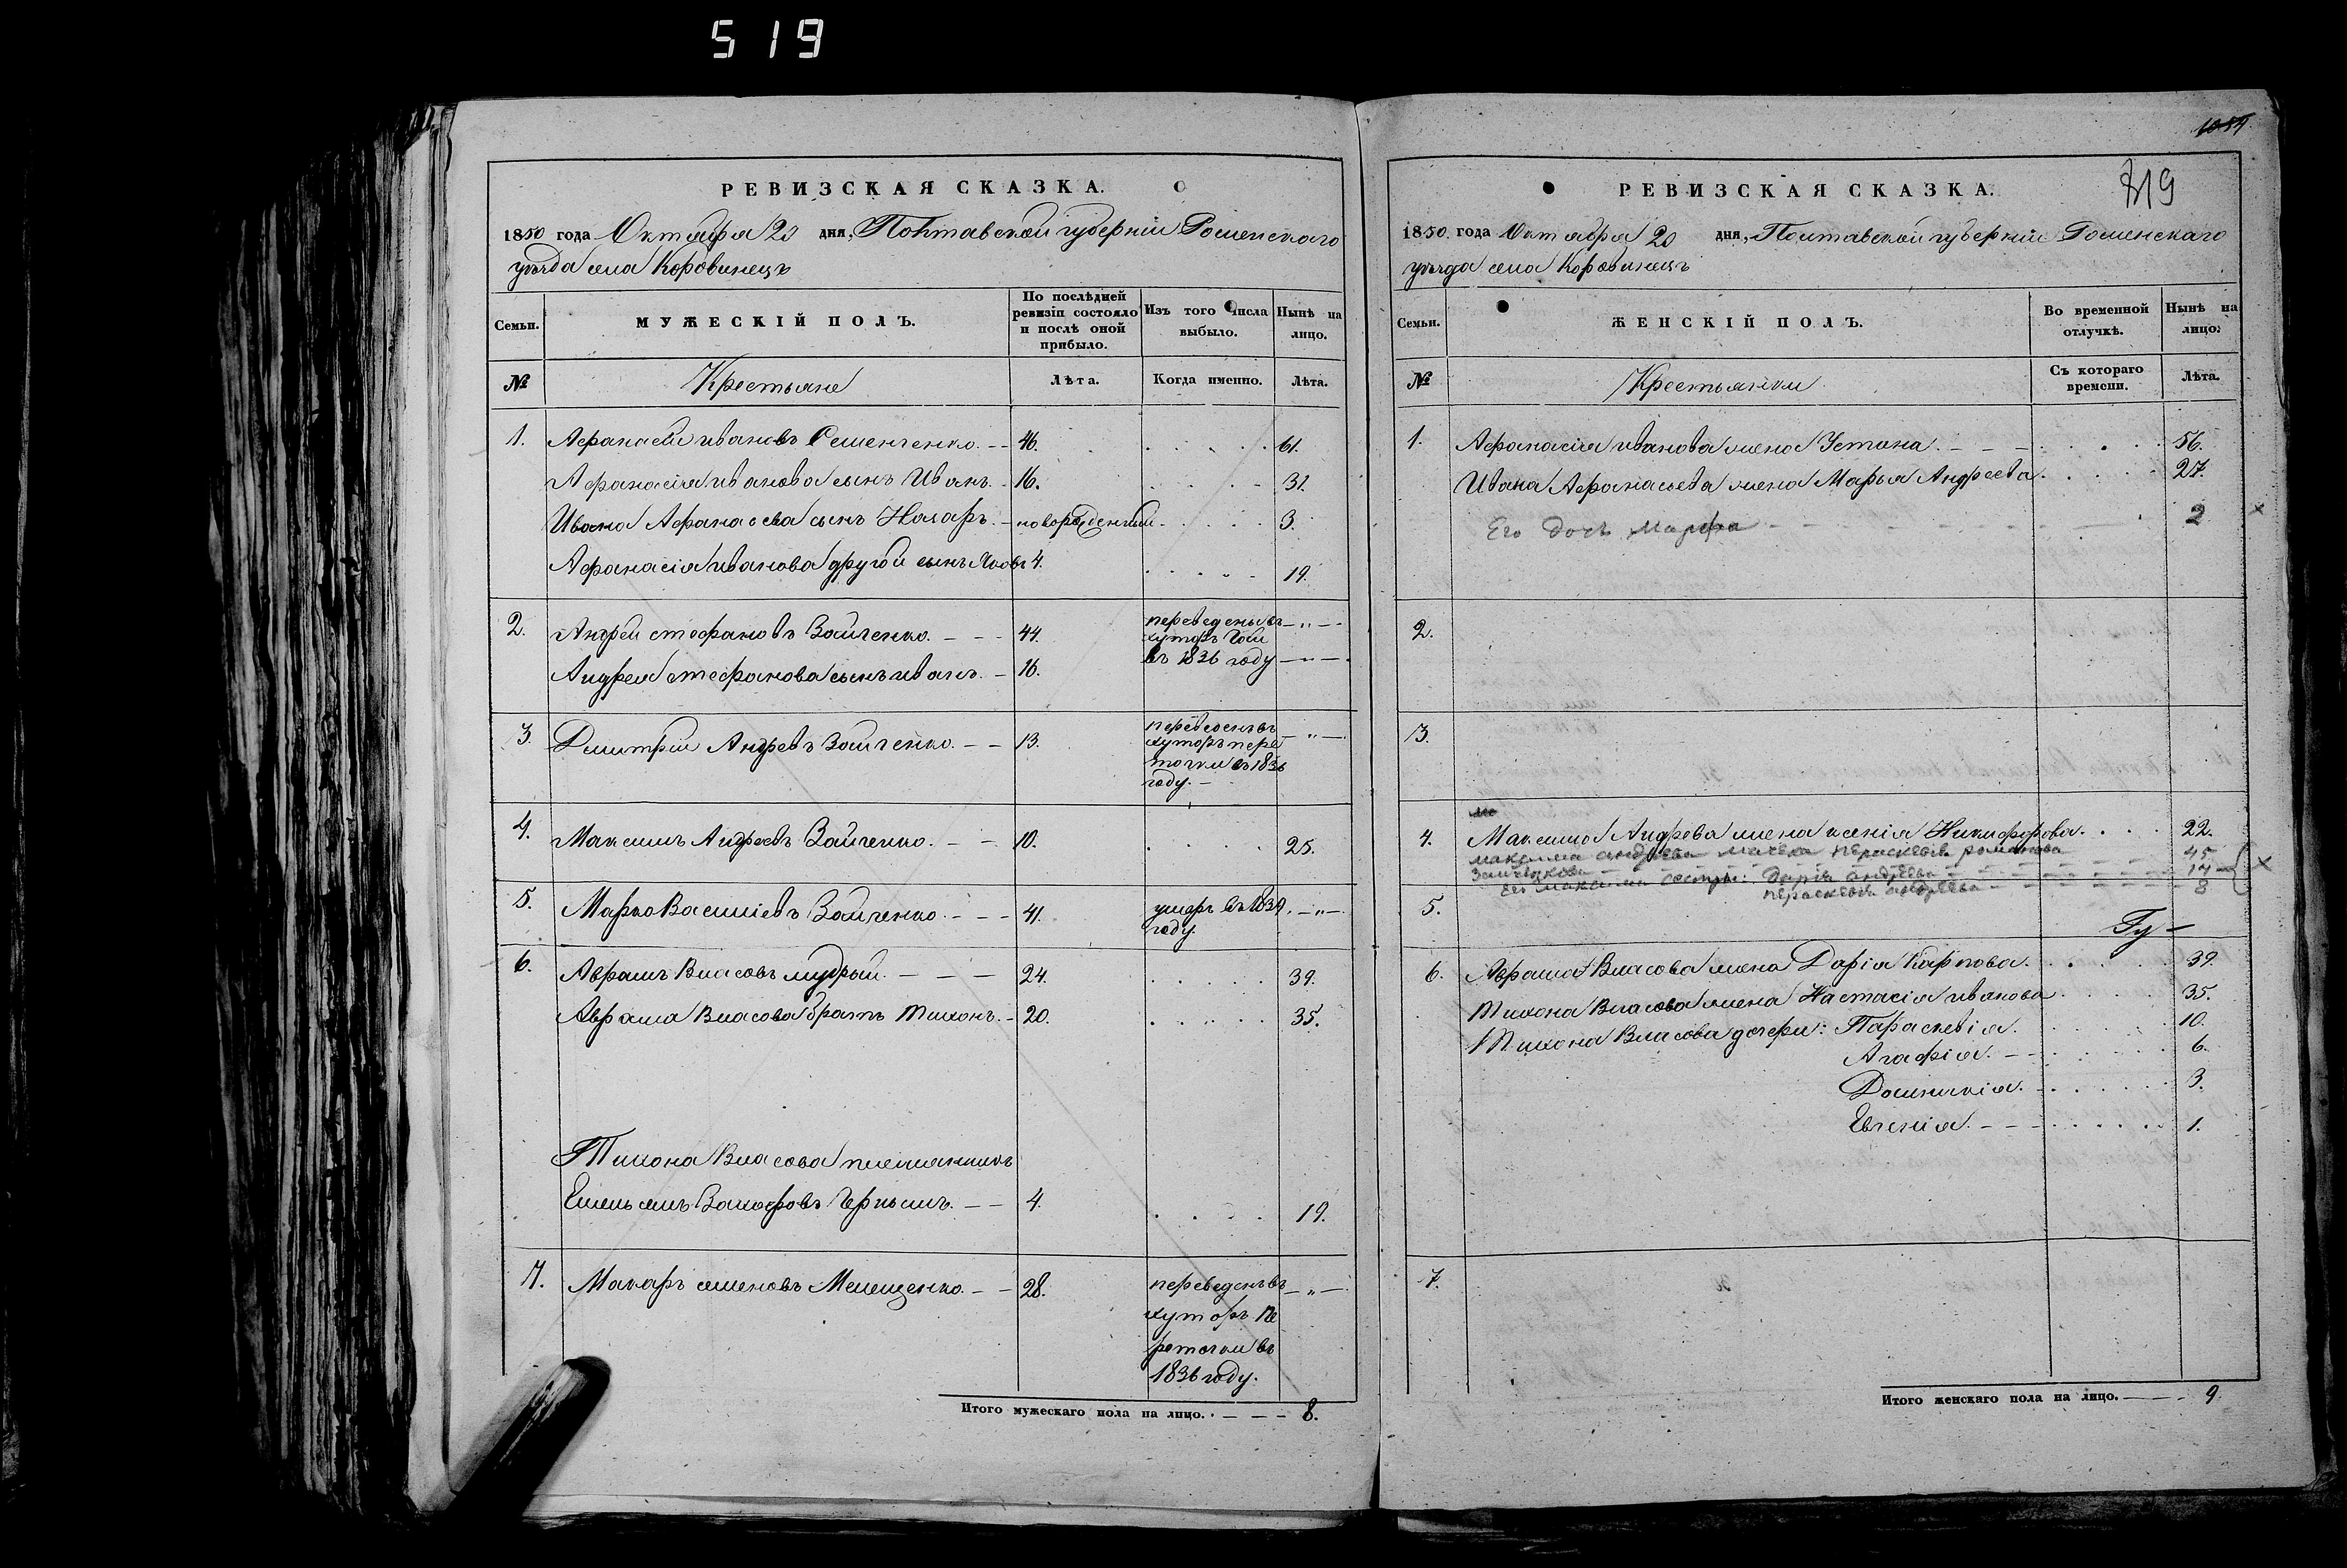 519
РЕВИЗСКАЯ СКАЗКА.
1850 года Октября 20 дня, Полтавской губернии Роменскаго
уѣзда села Коровинецъ
Семьи.
МУЖЕСКІЙ ПОЛЪ.
По послѣдней ревизіи состояло и послѣ оной прибыло.
Изъ того числа выбыло.
Нынѣ на лицо.
№
Крестьяне
Лѣта.
Когда именно.
Лѣта.
1. Афанасій ивановъ Семенченко. 46. 61.
Афанасія иванова сынъ Иванъ. 16. 31.
Ивана Афанасьева сынъ Назаръ. новорожденный 3.
Афанасія иванова другой сынъ Яковъ 4. 19.
2. Андрей стефановъ Заиченко. 44. переведены въ
хуторъ
Андрея стефанова сынъ иванъ. 16. въ 1836 году
3. Дмитрій Андреевъ Заиченко. 13. переведенъ въ
хуторъ пере
точки въ 1836
году.
4. Максимъ Андреевъ Заиченко. 10. 25.
5. Марко Василіевъ Заиченко. 41. умеръ въ 1839
году.
6. Аврамъ Власовъ мудрый. 24. 39.
Аврама Власова братъ Тихонъ. 20. 35.
Тихона Власова племянникъ
Емельянъ Захаровъ Чернышъ. 4. 19.
7. Макаръ семеновъ Мелещенко. 28. переведенъ въ
хуторъ Пе
реточки въ
1836 году.
Итого мужескаго пола на лицо. 8.
1054
719
РЕВИЗСКАЯ СКАЗКА.
1850 года Октября 20 дня, Полтавской губерніи Роменскаго
уѣзда села Коровинецъ
Семьи.
ЖЕНСКІЙ ПОЛЪ.
Во временной отлучкѣ.
Нынѣ на лицо.
№
Крестьянки
Съ котораго времени.
Лѣта.
1. Афанасія иванова жена Устина. 56.
Ивана Афанасьева жена Марья Андреева. 27.
Его дочь Марфа 2 ×
2.
3.
4. Максима Андрева жена ксенія Никифорова. 22.
максима андрѣева мачеха пераскевія романова
заиченкова 45
Его максима сестры: Дарія андрѣева 14 ×
пераскевія андрѣева 8
5.
Гу
6. Аврама Власова жена Дарія Карпова. 39.
Тихона Власова жена Настасія иванова 35.
Тихона Власова дочери: Параскевія. 10.
Агафія. 6.
Домникія. 3.
Евгенія. 1.
7.
Итого женскаго пола на лицо. 9.